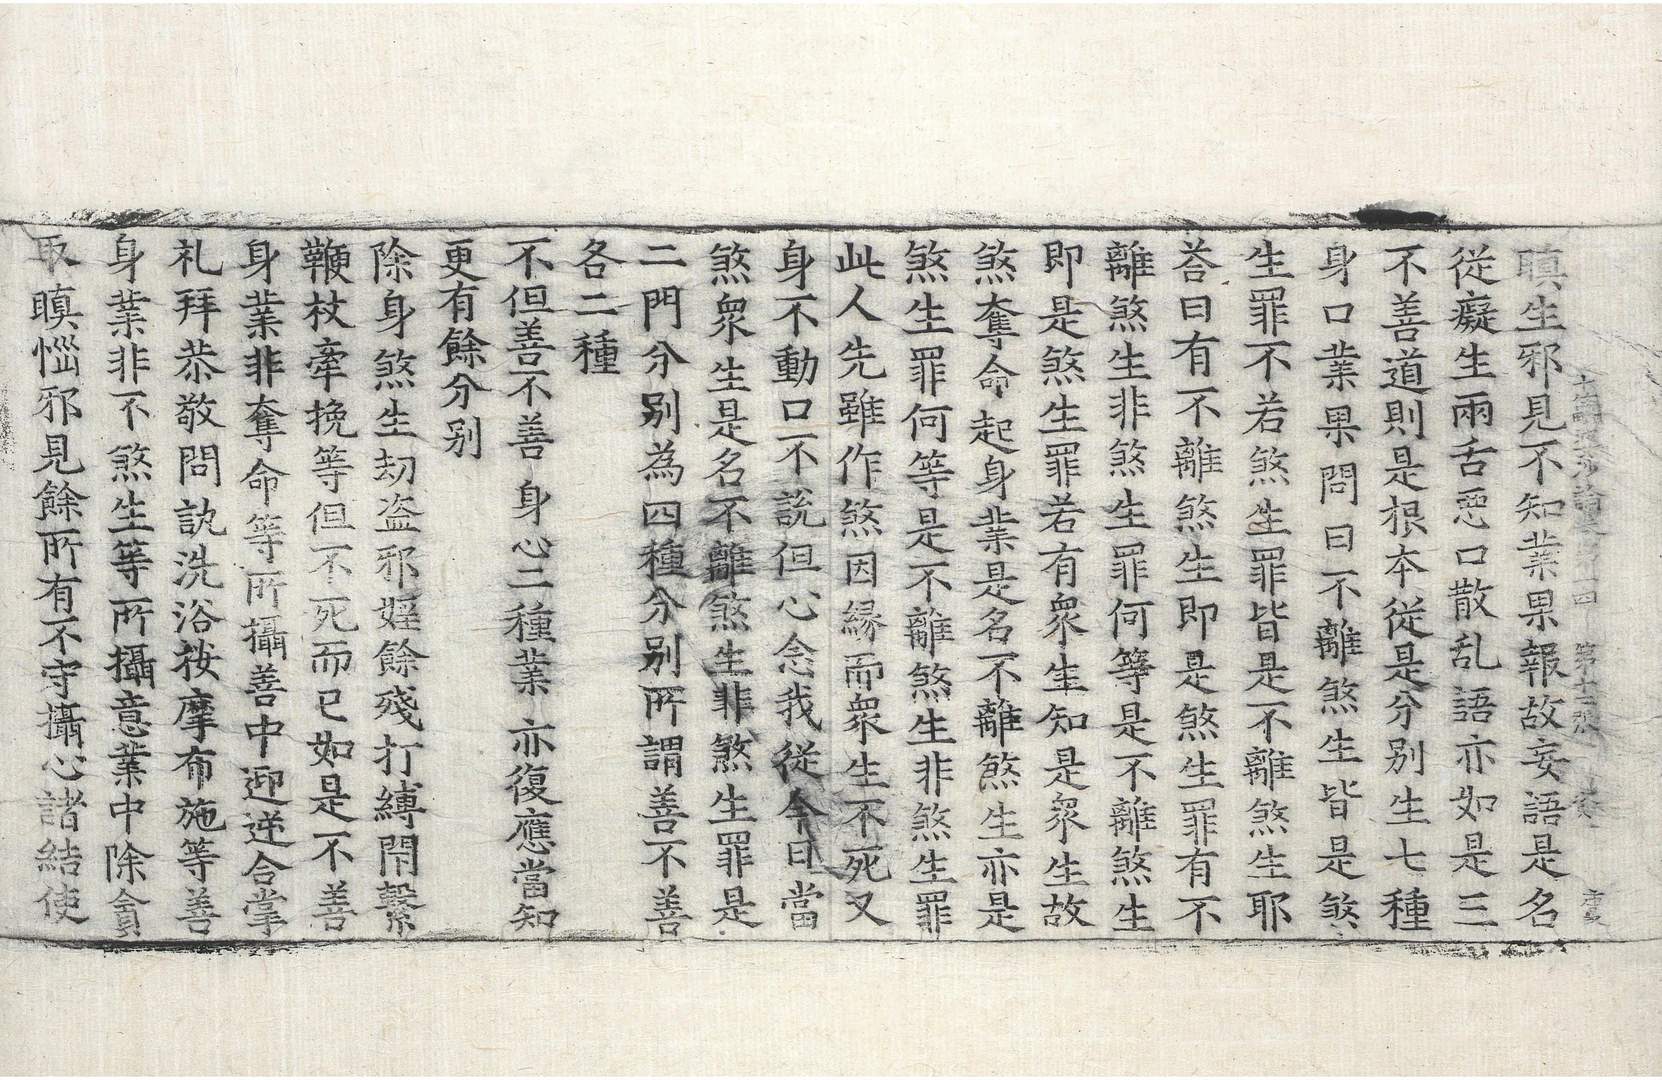 瞋生邪見不知業果報故妄語是名
從癡生兩舌惡口散乱語亦如是三
不善道則是根本從是分別生七種
身口業果問曰不離煞生皆是煞
生罪不若煞生罪皆是不離煞生耶
荅曰有不離煞生即是煞生罪有不
離煞生非煞生罪何等是不離煞生
即是煞生罪若有衆生知是衆生故
煞奪命起身業是名不離煞生亦是
煞生罪何等是不離煞生非煞生罪
此人先雖作煞因縁而衆生不死又
身不動口不說但心念我從今日當
煞衆生是名不離煞生非煞生罪是
二門分別為四種分別所謂善不善
各二種
不但善不善 身心二種業 亦復應當知
更有餘分別
除身煞生劫盗邪婬餘殘打縛閇繫
鞭杖牽挽等但不死而已如是不善
身業非奪命等所攝善中迎逆合掌
礼拜恭敬問訊洗浴按摩布施等善
身業非不煞生等所攝意業中除貪
取瞋惱邪見餘所有不守攝心諸結使